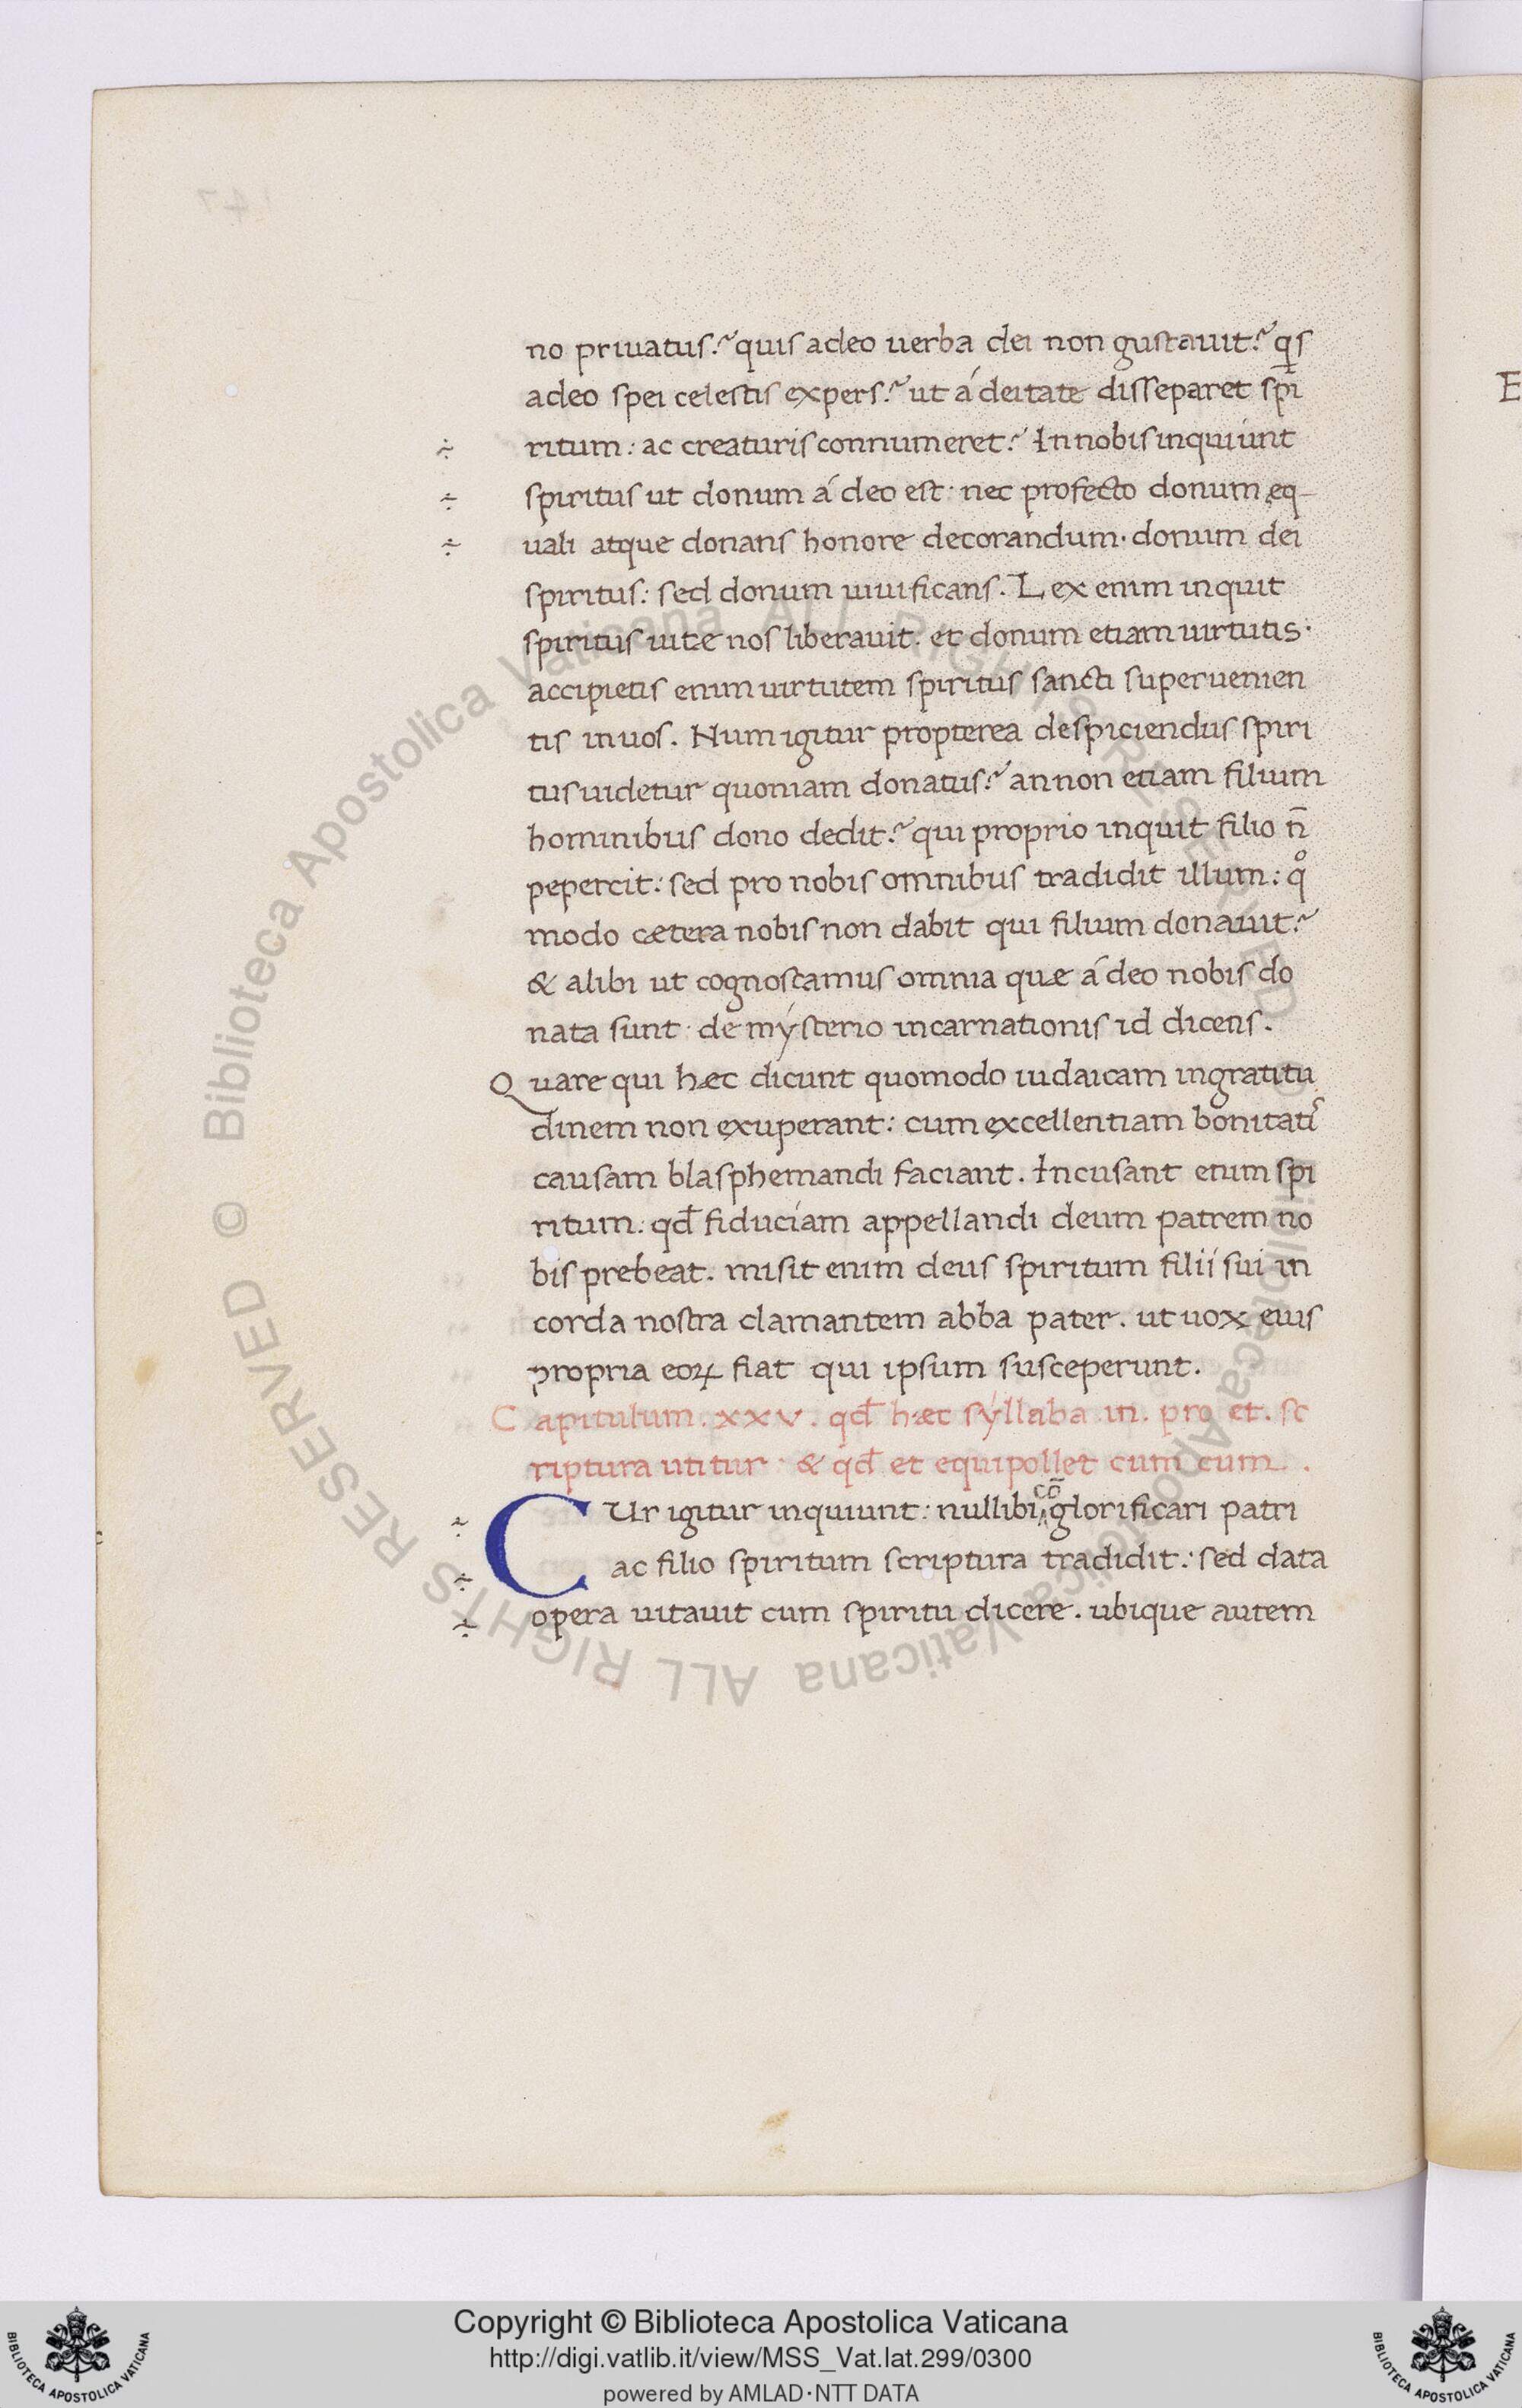 no priuatus? quis adeo uerba dei non gustauit? qis
adeo spei celestis expers? ut á deitate disseparet spi
ritum: ac creaturis connumeret? In nobis inquiunt
spiritus ut donum á deo est· nec profecto donum eq-
uali atque donans honore decorandum· donum dei
spiritus: sed donum uiuificans. Lex enim inquit
spiritus uitæ nos liberauit. et donum etiam uirtutis·
accipietis enim uirtutem spiritus sancti superuenien
tis in uos. Num igitur propterea despiciendus spiri
tus uidetur quoniam donatus? an non etiam filium
hominibus dono dedit? qui proprio inquit filio n̄
pepercit: sed pro nobis omnibus tradidit illum: qͦ
modo cætera nobis non dabit qui filium donauit?
& alibi ut cognoscamus omnia quæ á deo nobis do
nata sunt· de mýsterio incarnationis id dicens.
Quare qui hæc dicunt quomodo iudaicam ingratitu
dinem non exuperant: cum excellentiam bonitatis
causam blasphemandi faciant. Incusant enim spi
ritum: qd̄ fiduciam appellandi deum patrem no
bis prebeat. misit enim deus spiritum filii sui in
corda nostra clamantem abba pater. ut uox eius
propria eoꝝ fiat qui ipsum susceperunt.
Capitulum. xxv. qd̄ hæc sýllaba in. pro et. sc
riptura utitur· & qd̄ et equipollet cum cum.
CUr igitur inquiunt: nullibi cō glorificari patri
ac filio spiritum scriptura tradidit: sed data
opera uitauit cum spiritu dicere. ubique autem
E
© Biblioteca Apostolica Vaticana ALL RIGHTS RESERVED © Biblioteca Apostolica Vaticana ALL RIGHTS RESERVED
Copyright © Biblioteca Apostolica Vaticana
http://digi.vatlib.it/view/MSS_Vat.lat.299/0300
powered by AMLAD·NTT DATA
BIBLIOTECA APOSTOLICA VATICANA
BIBLIOTECA APOSTOLICA VATICANA